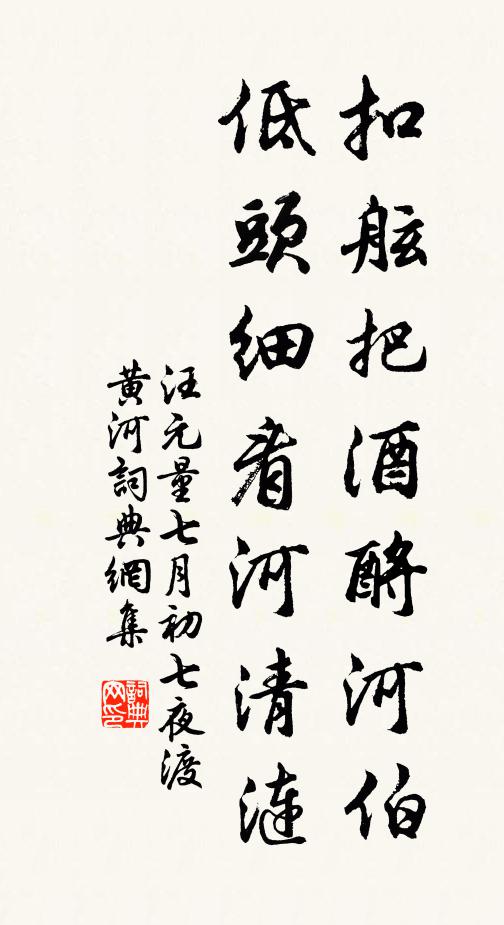 扣舷把酒酹河伯
低頭細看河清漣
汪元量七月初七夜渡
黃河詞典網集
詞典
网印